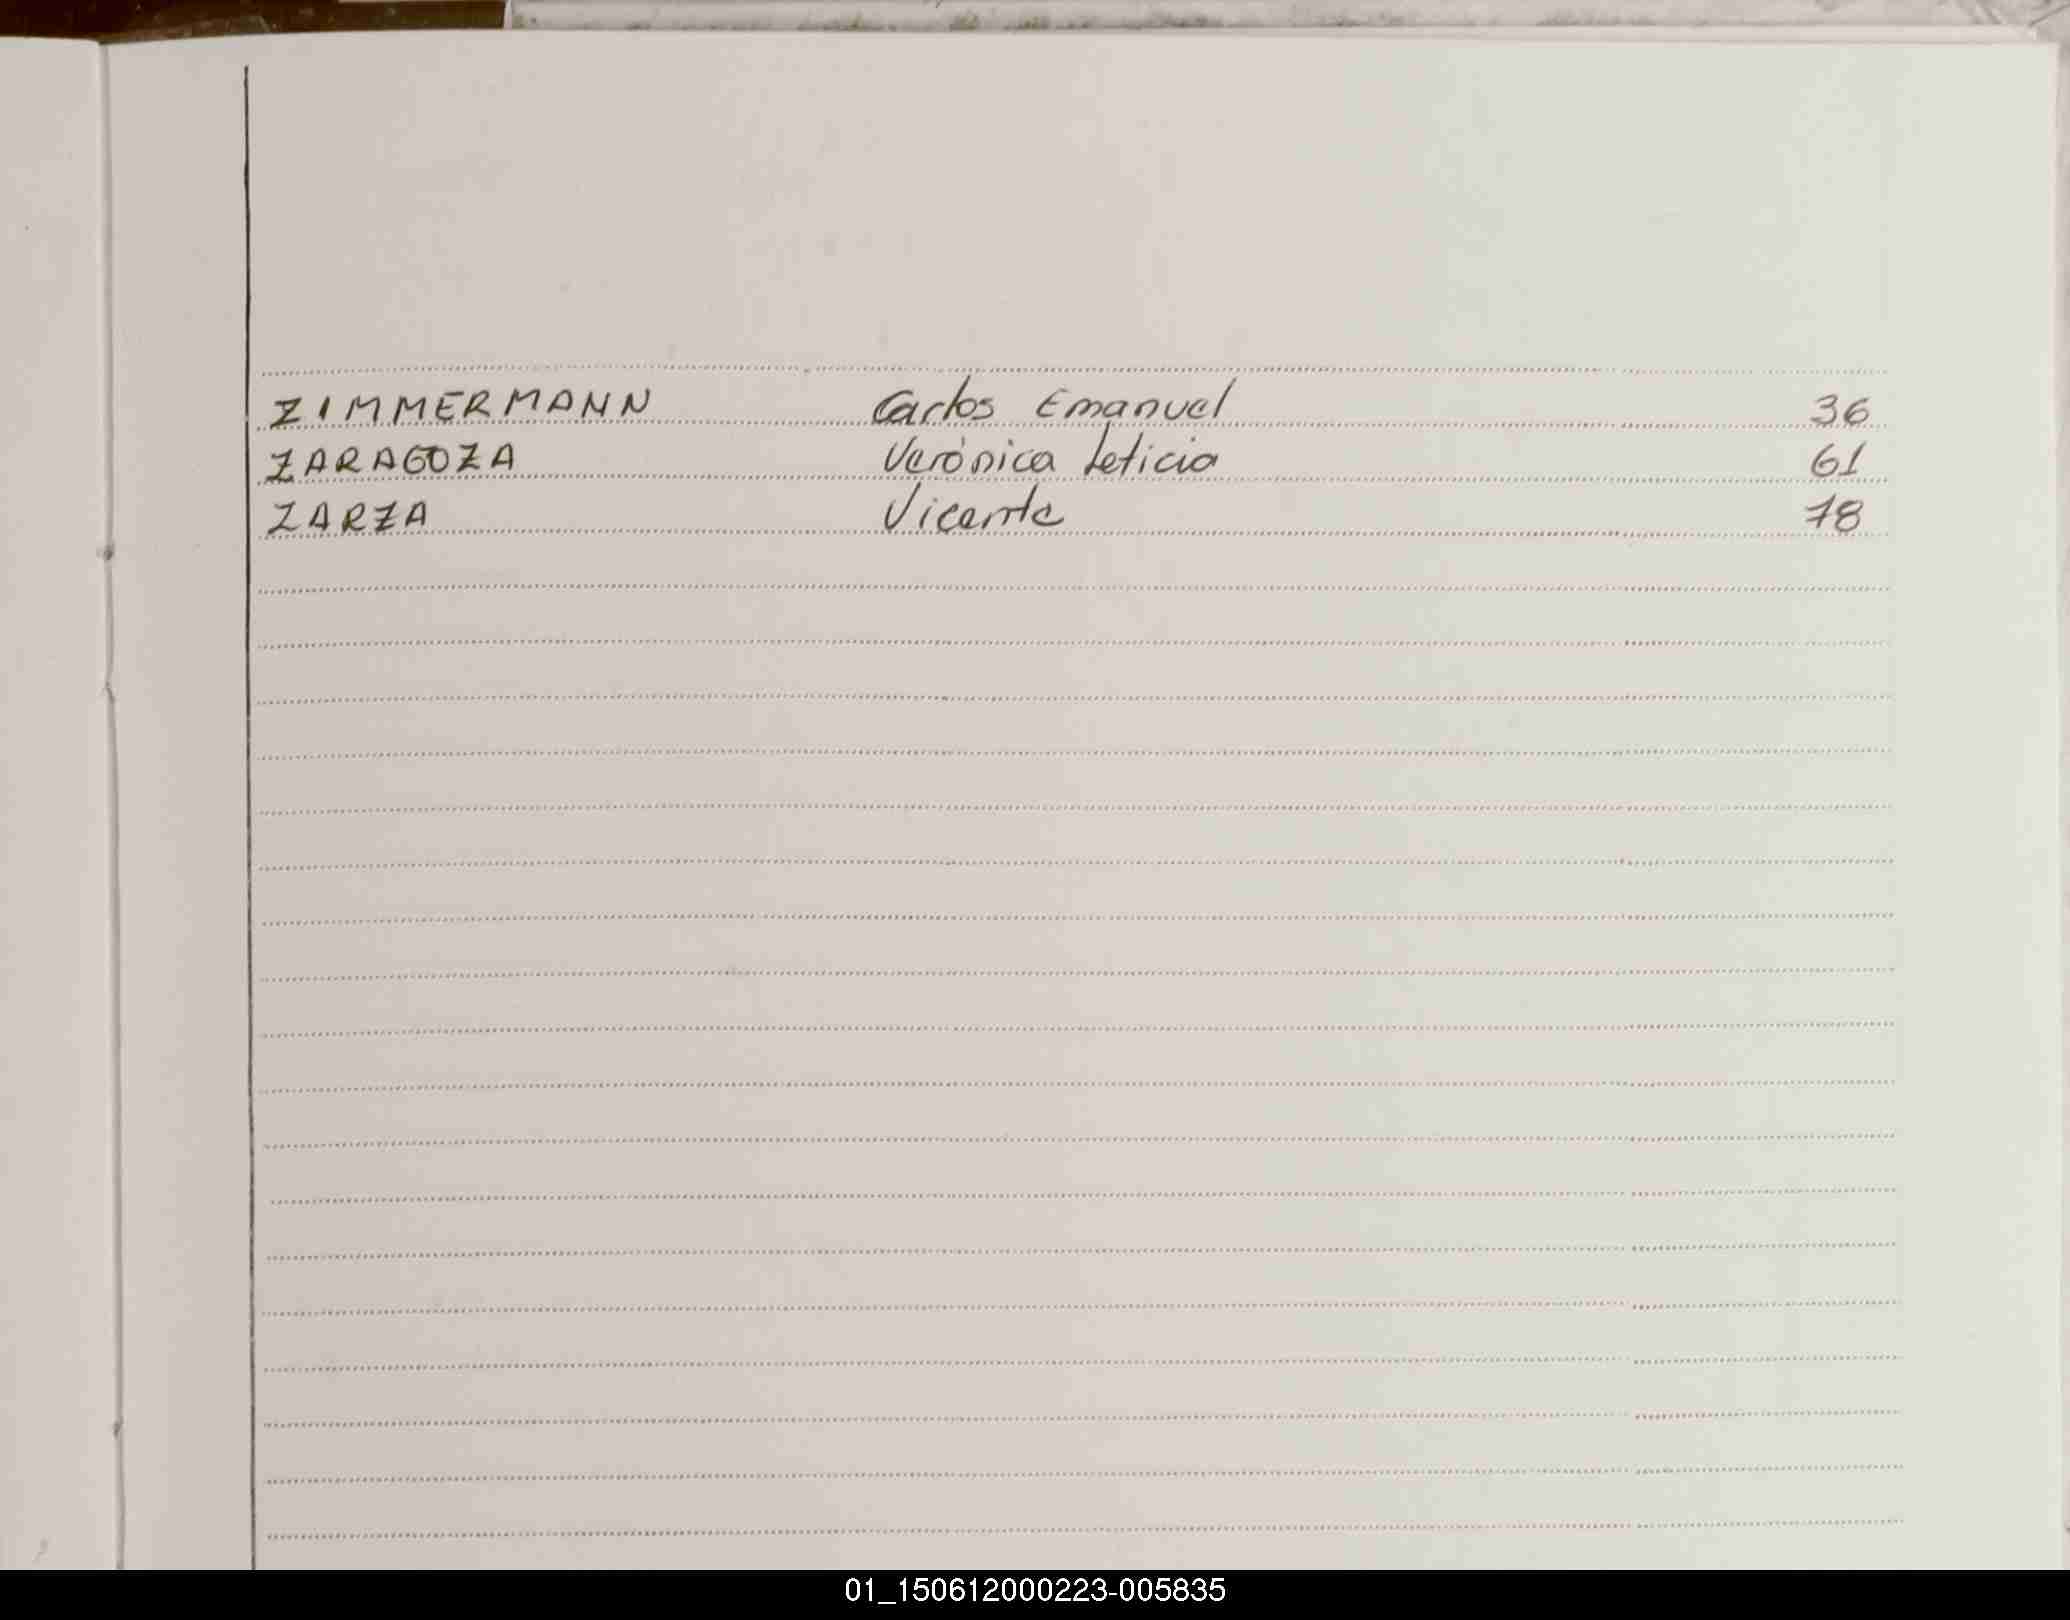 ZIMMERMANN Carlos Emanuel 36
ZARAGOZA Verónica Leticia 61
ZARZA Vicente 78
01_150612000223-005835